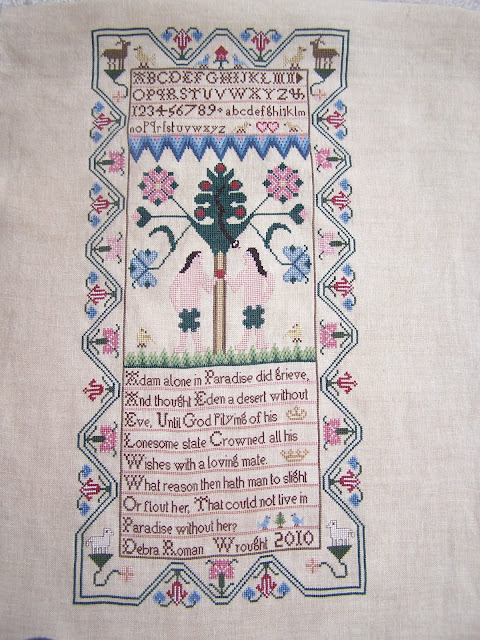 ABCDEFGHIJKLM
OPQRSTUVWXYZ&
123456789 abcdefghijklm
noPqrſstuvwxyz
Adam alone in Paradise did grieve,
And thought Eden a desert without
Eve, Until God Pitying of his
Lonesome state Crowned all his
Wishes with a loving mate.
What reason then hath man to slight
Or flout her, That could not live in
Paradise without her?
Debra Roman Wrought 2010